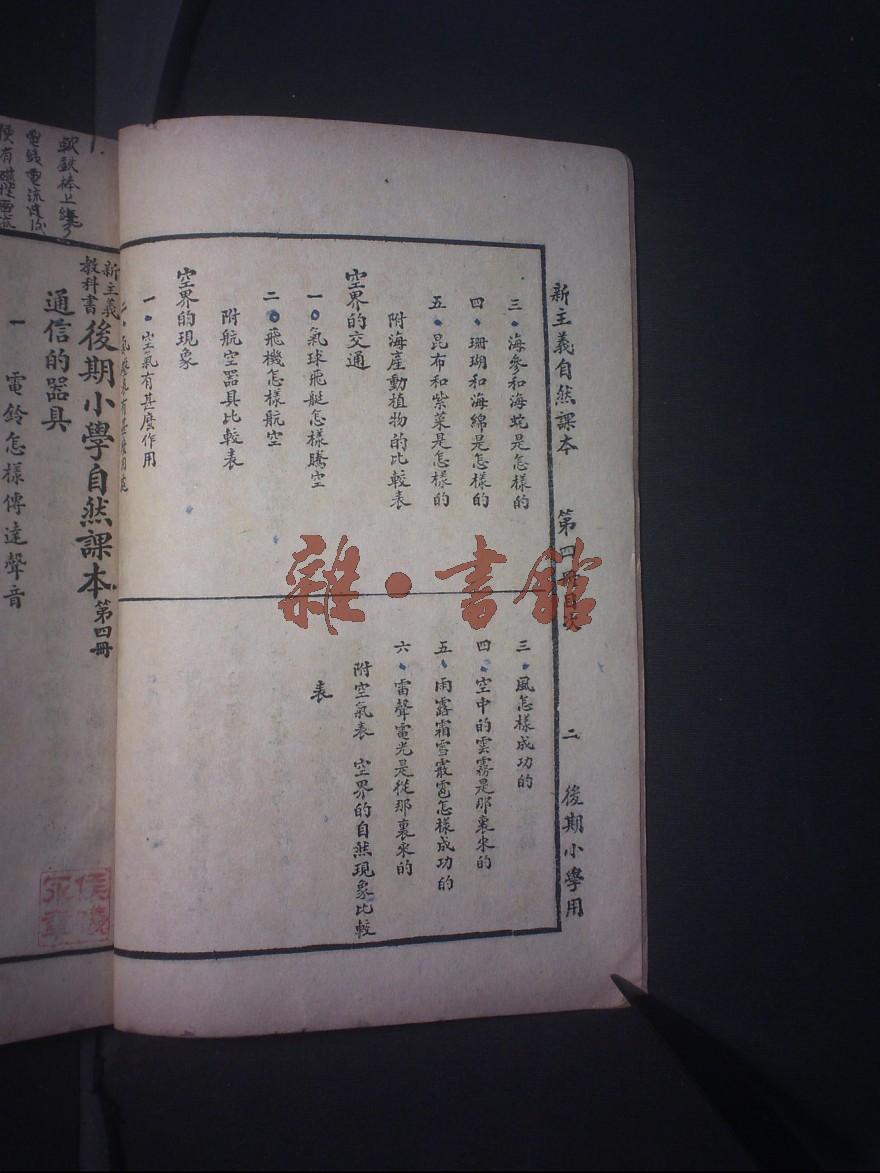 新主義自然課本 第四冊目次 二 後期小學用
三、海參和海蛇是怎樣的
四、珊瑚和海綿是怎樣的
五、昆布和紫菜是怎樣的
附海產動植物的比較表
空界的交通
一、氣球飛艇怎樣騰空
二、飛機怎樣航空
附航空器具比較表
空界的現象
一、空氣有甚麼作用
三、風怎樣成功的
四、空中的雲霧是那裏來的
五、雨露霜雪霰雹怎樣成功的
六、雷聲電光是從那裏來的
附空氣表 空界的自然現象比較
表
雜·書館
新主義
教科書
後期小學自然課本 第四冊
通信的器具
一 電鈴怎樣傳達聲音
軟鉄棒上繞
電綫電流